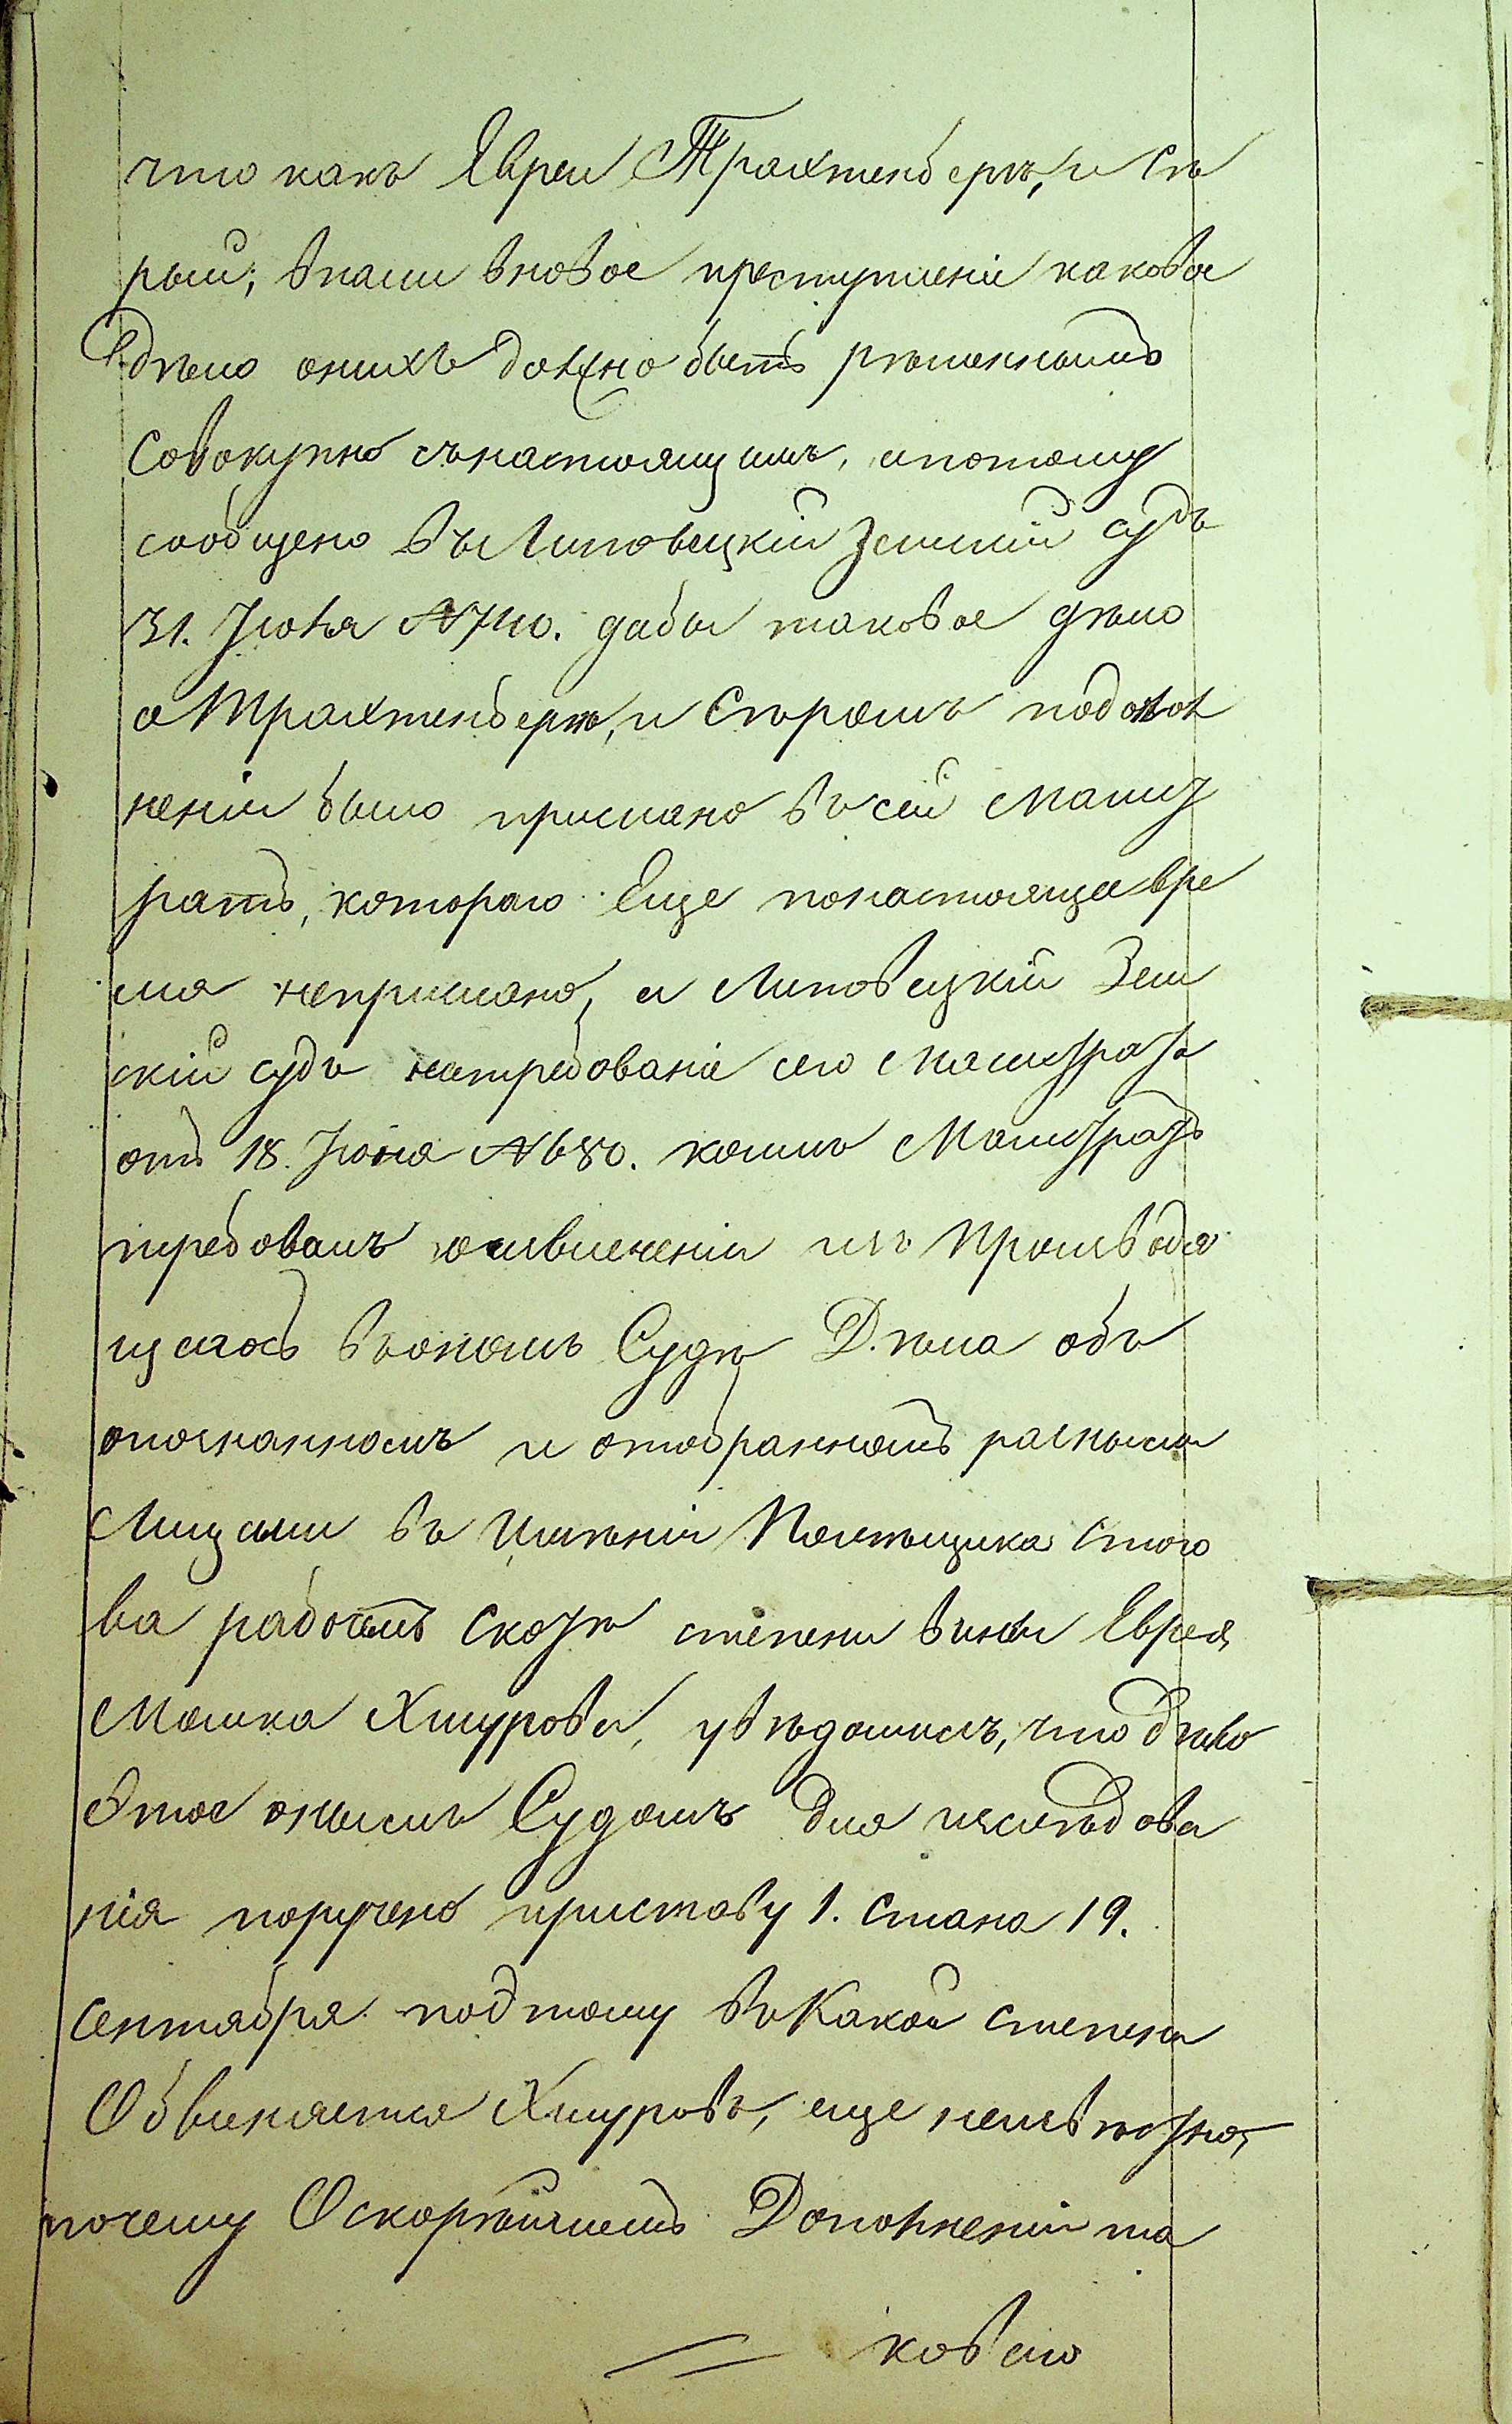 что какъ Евреи Трахтенберъ, и Сѣ
рый, впали вновое преступленіе каковое
дѣло онихъ должно быть рѣшеннымъ
Совокупно снастоящимъ, ипотому
сообщено въ Липовецкій Земскій судъ
31. Іюля №740. дабы таковое дѣло
о Трахтенберѣ, и Сѣромъ подопол
неніи было прислано въ сей Магис
ратъ, котораго Еще понастоящее вре
мя неприслано, а Липовецкій Зем
скій судъ натребованіе сего Магистрата
отъ 18. Іюня №680. коимъ Магистратъ
требовалъ оизвлеченіи изъ Производя
щегося въономъ Судѣ Дѣла объ
опознанномъ и отобранномъ разными
Лицами въ Имѣніи Помѣщика
скотѣ степени вины Еврея
Мошка Хмурова, увѣдомилъ, что дѣло
Этое онымъ Судомъ для изслѣдова
нія поручено приставу 1. Стана 19.
Сентября подтому въ Какой степени
Обвиняется Хмуровъ, еще неизвѣстно,
почему Оскорѣйшемъ Дополненіи та
коваго